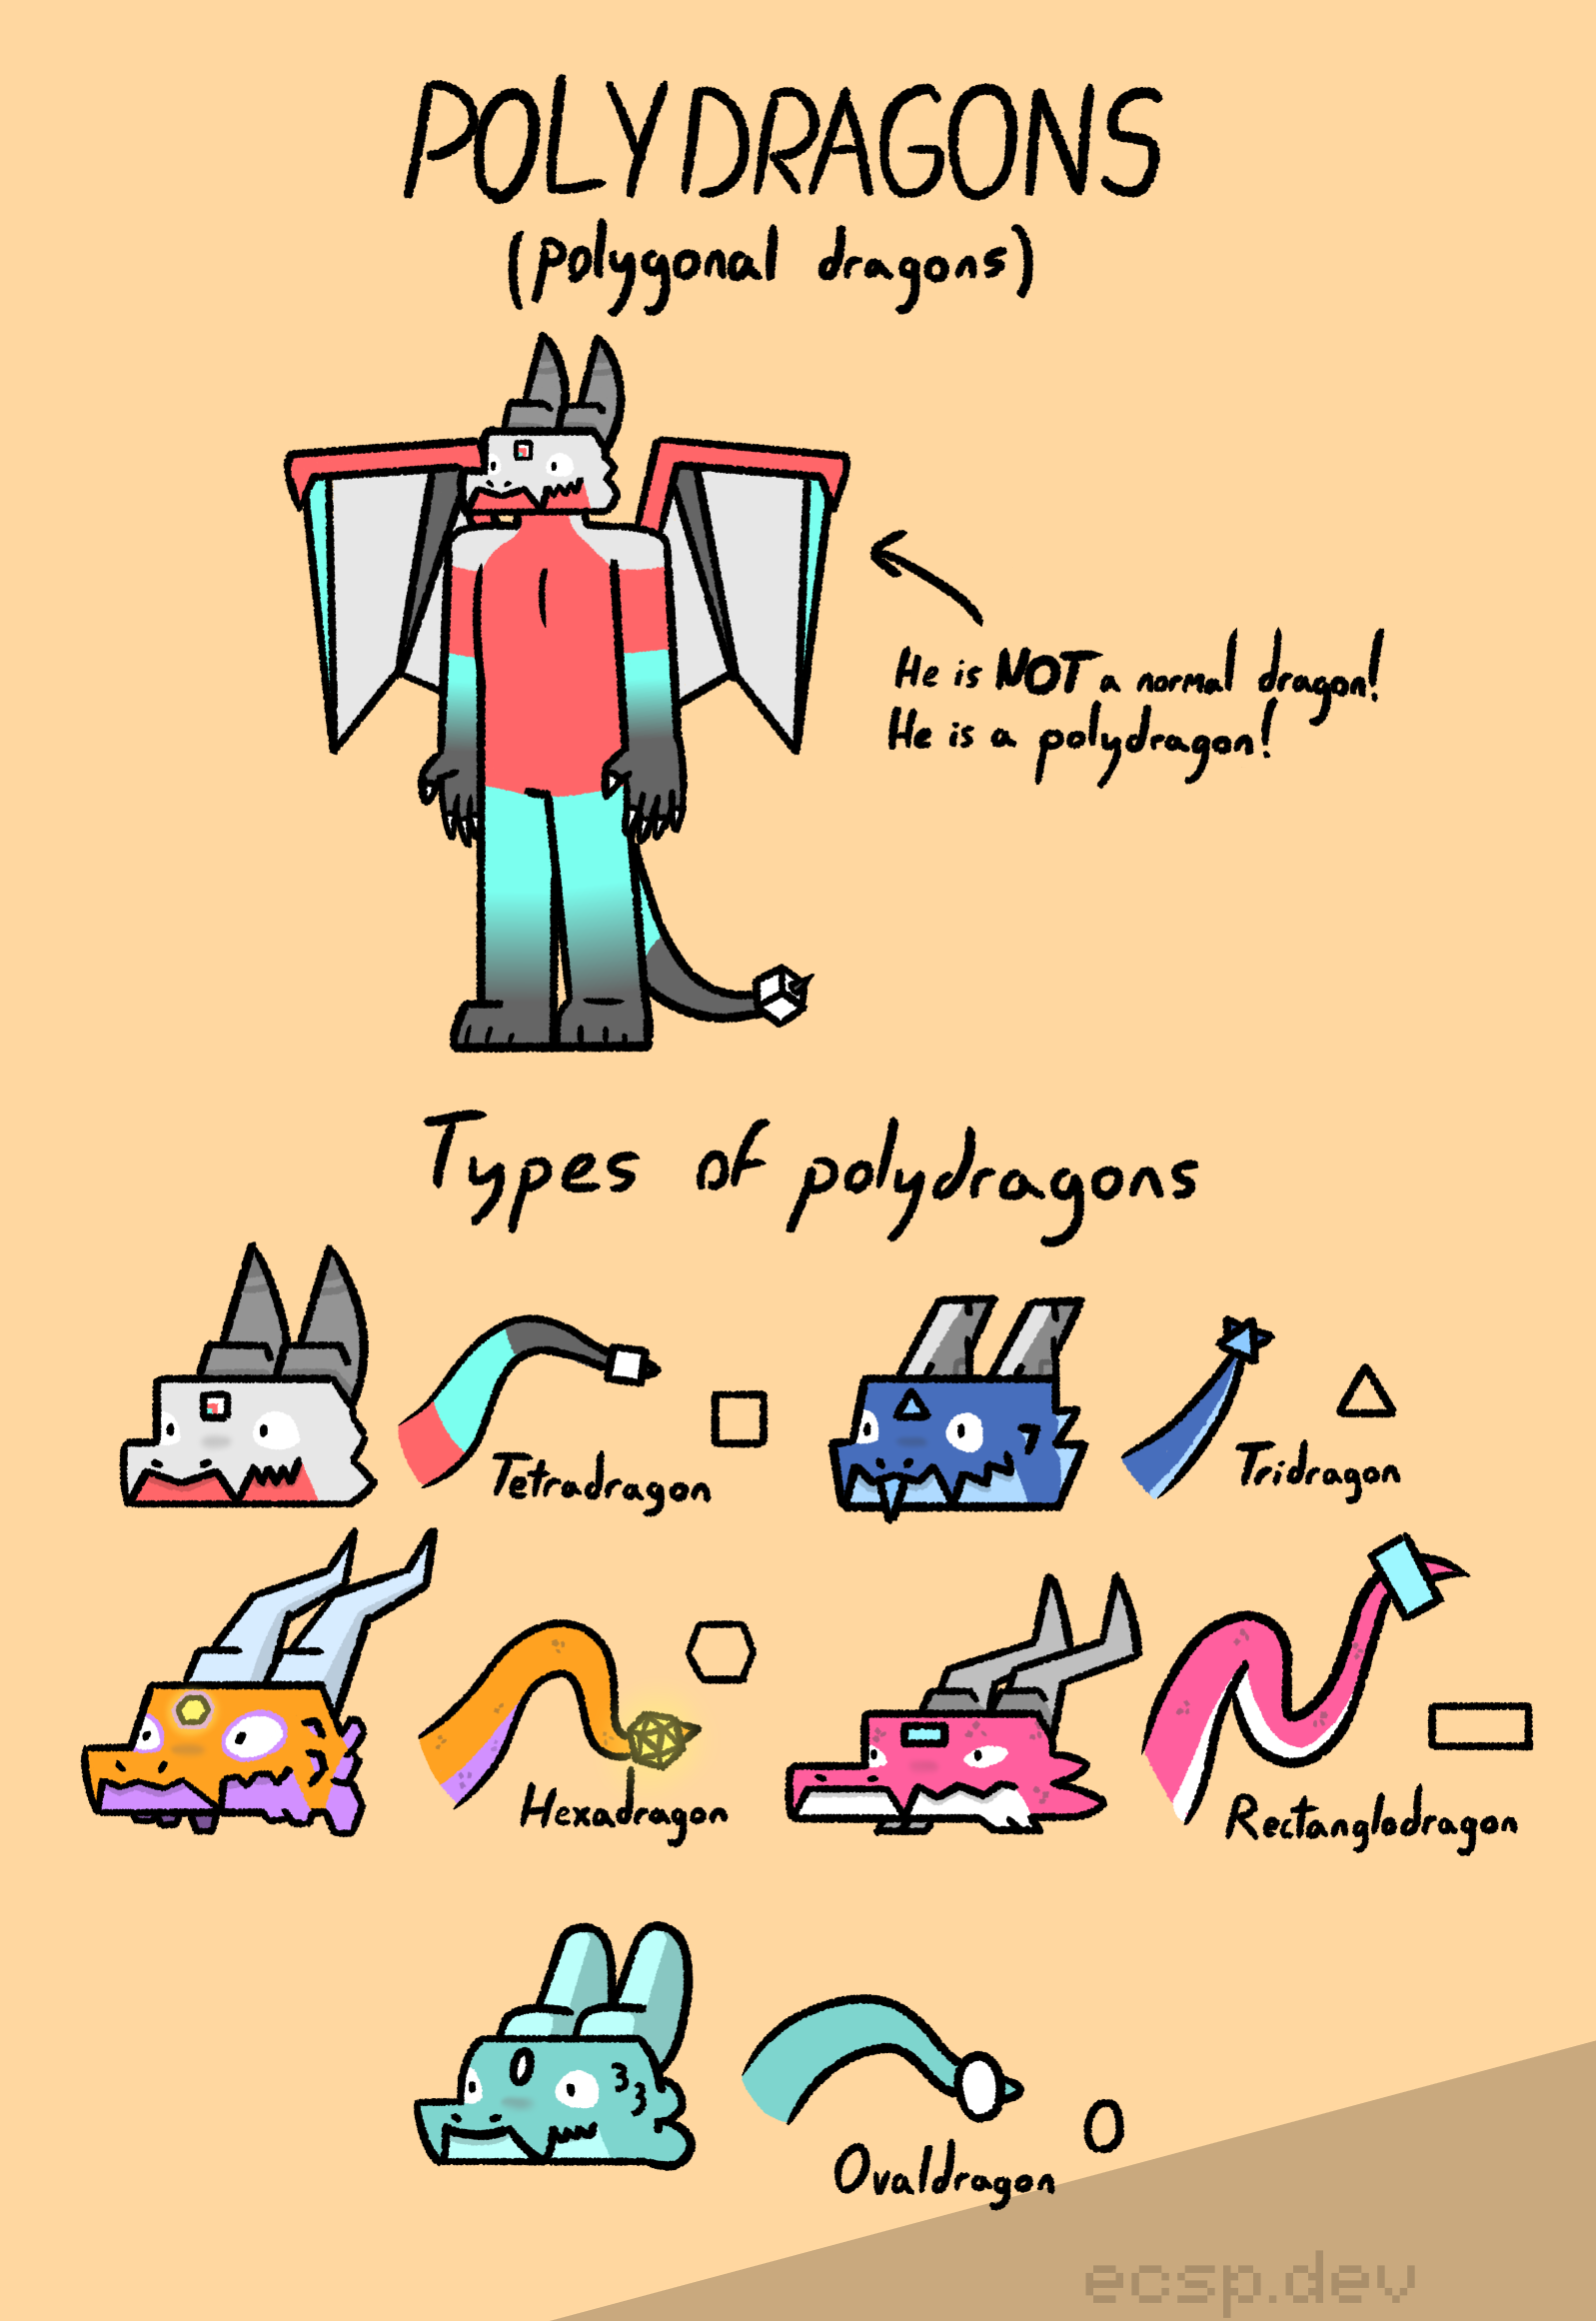 POLYDRAGONS
(polygonal dragons)
He is NOT a normal dragon!
He is a polydragon!
Types of polydragons
Tetradragon
Tridragon
Hexadragon
Rectanglodragon
Ovaldragon
ecsp.dev